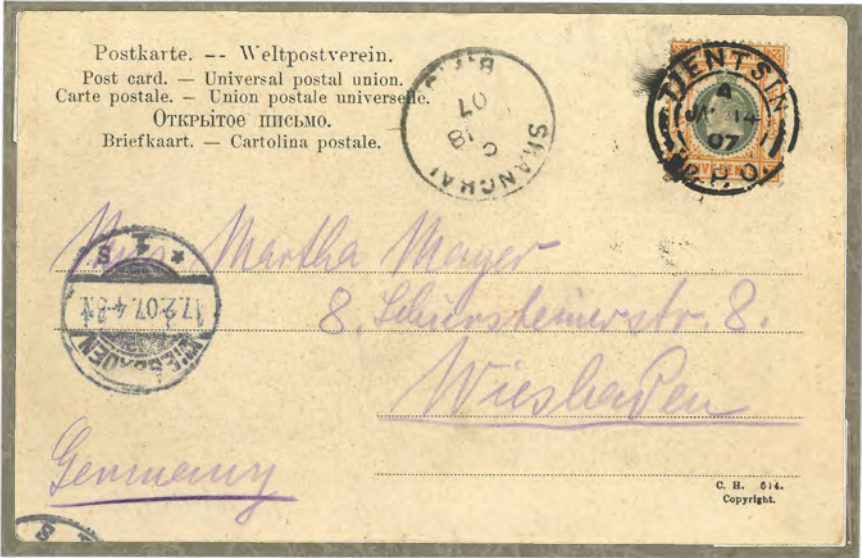 Postkarte. -- Weltpostverein.
Post card. — Universal postal union.
Carte postale. — Union postale universelle.
Открытое письмо.
Briefkaart. — Cartolina postale.
SHANGHAI
B.P.O.
C
18
07
TIENTSIN
A
JA 14
07
B.P.O.
Martha Mayer
8. Schiersteinerstr. 8.
Wiesbaden
Germany
WIESBADEN
17.2.07. 4-8
C. H. 614.
Copyright.